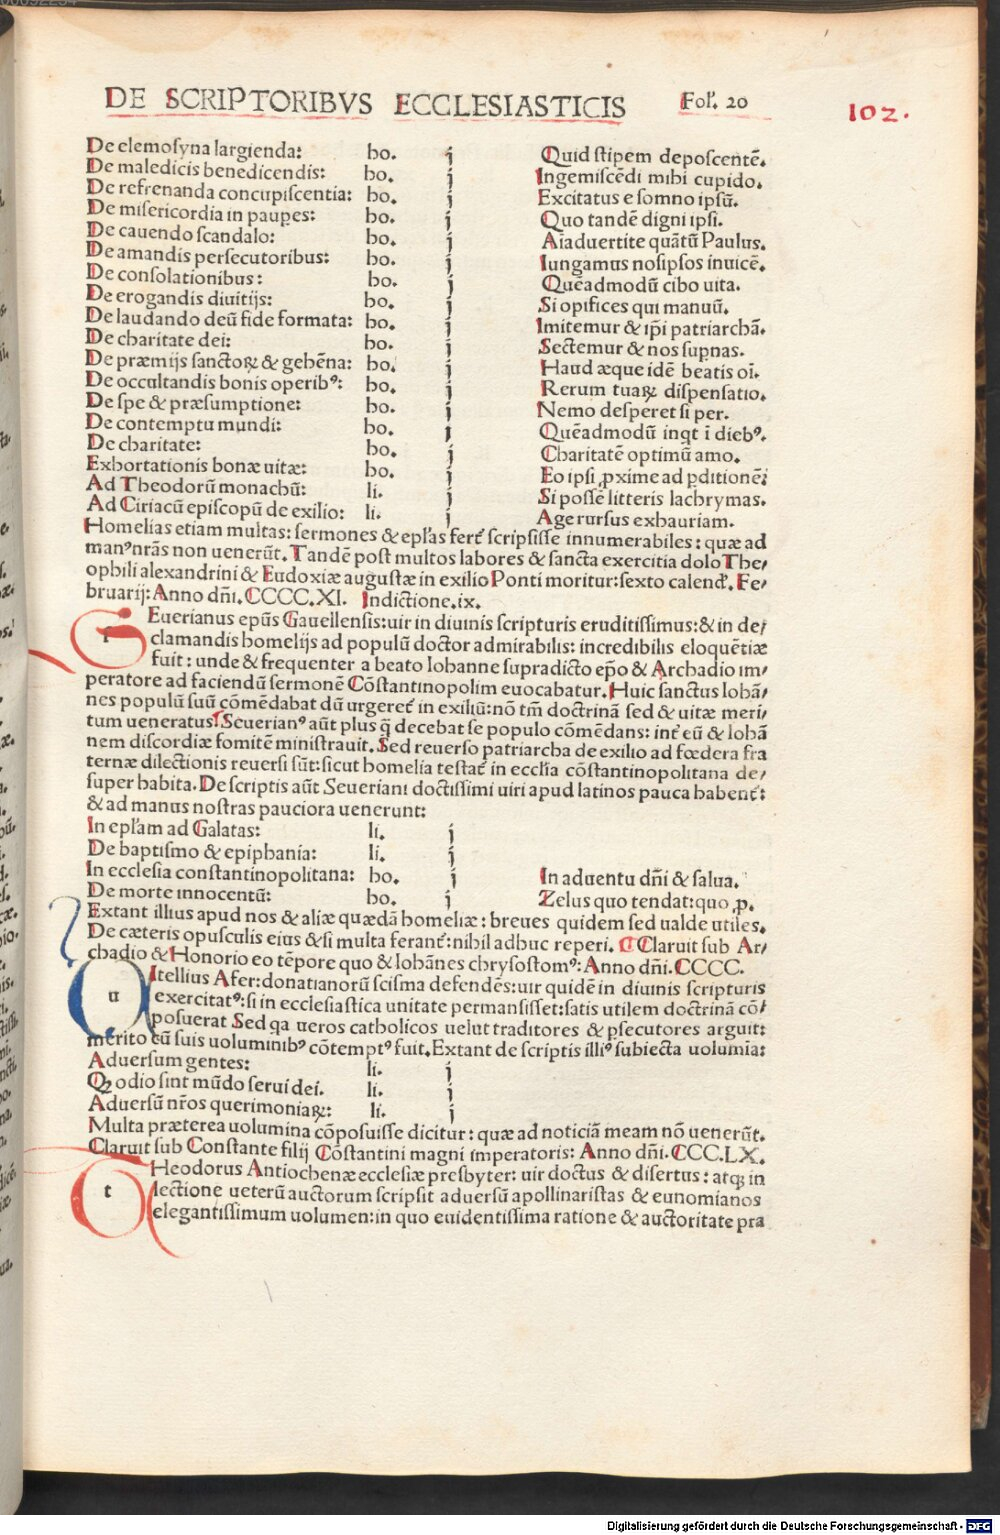 DE SCRIPTORIBVS ECCLESIASTICIS Fol'. 20
102.
De elemosyna largienda: ho. j Quid stipem deposcentē.
De maledicis benedicendis: ho. j Ingemiscēdi mihi cupido.
De refrenanda concupiscentia: ho. j Excitatus e somno ipsū.
De misericordia in paupes: ho. j Quo tandē digni ipsi.
De cauendo scandalo: ho. j Aīaduertite quātū Paulus.
De amandis persecutoribus: ho. j Iungamus nosipsos inuicē.
De consolationibus: ho. j Quēadmodū cibo uita.
De erogandis diuitijs: ho. j Si opifices qui manuū.
De laudando deū fide formata: ho. j Imitemur & ip̄i patriarchā.
De charitate dei: ho. j Sectemur & nos supnas.
De præmijs sanctoꝝ & gehēna: ho. j Haud æque idē beatis oī.
De occultandis bonis operibꝰ: ho. j Rerum tuaꝝ dispensatio.
De spe & præsumptione: ho. j Nemo desperet si per.
De contemptu mundi: ho. j Quēadmodū inqt ī diebꝰ.
De charitate: ho. j Charitatē optimū amo.
Exhortationis bonæ uitæ: ho. j Eo ipsi ꝓxime ad ꝑditionē:
Ad Theodorū monachū: li. j Si possē litteris lachrymas.
Ad Ciriacū episcopū de exilio: li. j Age rursus exhauriam.
Homelias etiam multas: sermones & epl'as fert' scripsisse innumerabiles: quæ ad
manꝰ nr̄as non uenerūt. Tandē post multos labores & sancta exercitia dolo The/
ophili alexandrini & Eudoxiæ augustæ in exilio Ponti moritur: sexto calend'. Fe/
bruarij: Anno dn̄i. CCCC.XI. Indictione.ix.
SEuerianus ep̄us Gauellensis: uir in diuinis scripturis eruditissimus: & in de/
clamandis homelijs ad populū doctor admirabilis: incredibilis eloquētiæ
fuit: unde & frequenter a beato Iohanne supradicto ep̄o & Archadio im/
peratore ad faciendū sermonē Cōstantinopolim euocabatur. Huic sanctus Iohā/
nes populū suū cōmēdabat dū urgeret' in exiliū: nō tm̄ doctrinā sed & uitæ meri/
tum ueneratus. Seuerianꝰ aūt plus q̄ decebat se populo cōmēdans: int' eū & Iohā
nem discordiæ fomitē ministrauit. Sed reuerso patriarcha de exilio ad fœdera fra
ternæ dilectionis reuersi sūt: sicut homelia testat' in eccl'ia cōstantinopolitana de/
super habita. De scriptis aūt Seueriani doctissimi uiri apud latinos pauca habent':
& ad manus nostras pauciora uenerunt:
In epl'am ad Galatas: li. j
De baptismo & epiphania: li. j
In ecclesia constantinopolitana: ho. j In aduentu dn̄i & salua.
De morte innocentū: ho. j Zelus quo tendat: quo ꝓ.
Extant illius apud nos & aliæ quædā homeliæ: breues quidem sed ualde utiles.
De cæteris opusculis eius & si multa ferant': nihil adhuc reperi. Claruit sub Ar/
chadio & Honorio eo tēpore quo & Iohānes chrysostomꝰ: Anno dn̄i. CCCC.
uItellius Afer: donatianorū scisma defendēs: uir quidē in diuinis scripturis
exercitatꝰ: si in ecclesiastica unitate permansisset: satis utilem doctrinā cō/
posuerat Sed qa ueros catholicos uelut traditores & ꝑsecutores arguit:
merito cū suis uoluminibꝰ cōtemptꝰ fuit. Extant de scriptis illiꝰ subiecta uolumīa:
Aduersum gentes: li. j
Qꝫ odio sint mūdo serui dei. li. j
Aduersū nr̄os querimoniaꝝ: li. j
Multa præterea uolumina cōposuisse dicitur: quæ ad noticiā meam nō uenerūt.
Claruit sub Constante filij Cōstantini magni imperatoris: Anno dn̄i. CCC.LX.
tHeodorus Antiochenæ ecclesiæ presbyter: uir doctus & disertus: atqꝫ in
lectione ueterū auctorum scripsit aduersū apollinaristas & eunomianos
elegantissimum uolumen: in quo euidentissima ratione & auctoritate pra
Digitalisierung gefördert durch die Deutsche Forschungsgemeinschaft - DFG